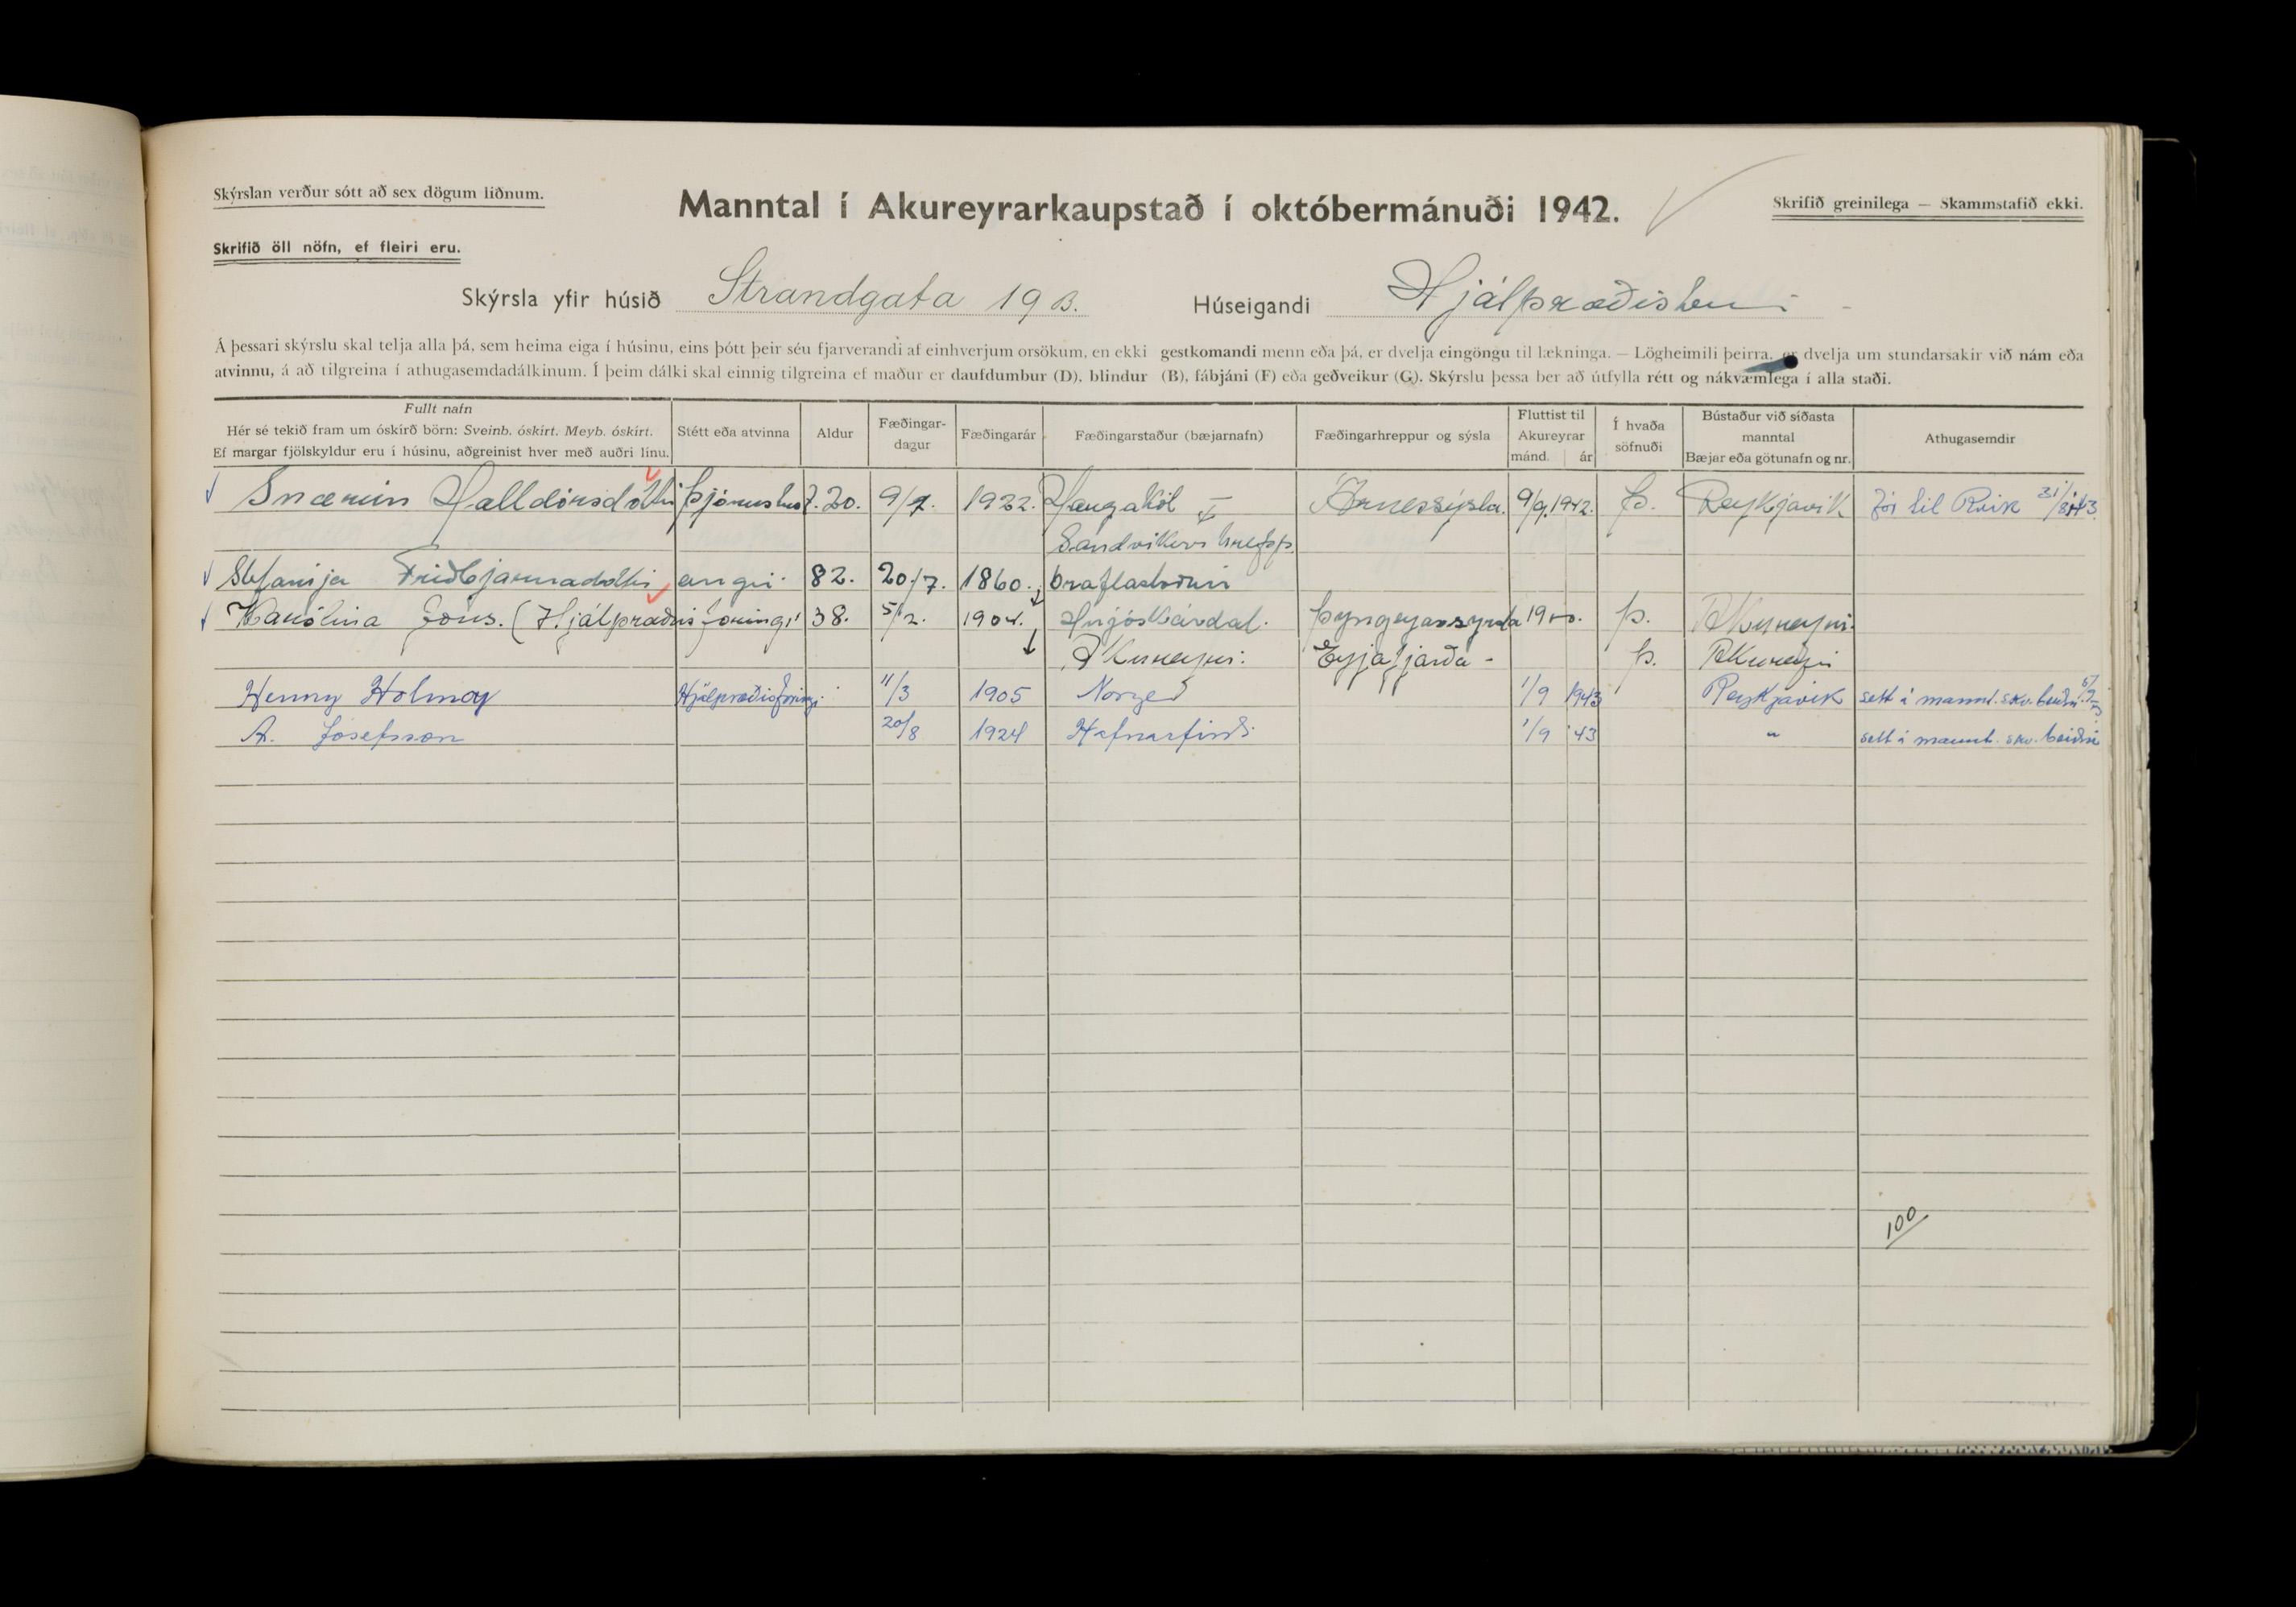 Skýrslan verður sótt að sex dögum liðnum.
Manntal í Akureyrarkaupstað í októbermánuði 1942.
Skrifið greinilega — Skammstafið ekki.
Skrifið öll nöfn, ef fleiri eru.
Skýrsla yfir húsið Strandgata 19 B. Húseigandi Hjálpræðisherinn
Á þessari skýrslu skal telja alla þá, sem heima eiga í húsinu, eins þótt þeir séu fjarverandi af einhverjum orsökum, en ekki gestkomandi menn eða þá, er dvelja eingöngu til lækninga. — Lögheimili þeirra, er dvelja um stundarsakir við nám eða
atvinnu, á að tilgreina í athugasemdadálkinum. Í þeim dálki skal einnig tilgreina ef maður er daufdumbur (D), blindur (B), fábjáni (F) eða geðveikur (G). Skýrslu þessa ber að útfylla rétt og nákvæmlega í alla staði.
Fullt nafn
Hér sé tekið fram um óskírð börn: Sveinb. óskírt. Meyb. óskírt.
Ef margar fjölskyldur eru í húsinu, aðgreinist hver með auðri línu.
Stétt eða atvinna
Aldur
Fæðingar-
dagur
Fæðingarár
Fæðingarstaður (bæjarnafn)
Fæðingarhreppur og sýsla
Fluttist til
Akureyrar
mánd. ár
Í hvaða
söfnuði
Bústaður við síðasta
manntal
Bæjar eða götunafn og nr.
Athugasemdir
Halldórsdóttir 20. 9/7. 1922. Árnessýsla. 9/9. 1942. Þ. Reykjavik til Rvik 31/8 43
Sandvikur
Stefanija Friðbjarnardóttir engin 82. 20/7. 1860.
Karólina Jóns. (Hjálpræðisforingi 38. 5/2. 1904. Þyngeyarsysla Þ. Akureyri.
Akureyri. Eyjafjarða - Þ. Akureyri
Henny Holmøy Hjálpræðisforingi 11/3 1905 Norge 1/9 1943 Reykjavik sett á mannt. skv. beiðni
A. Josefsson 20/8 1924 Hafnarfirði 1/9 43 " sett á mannt. skv. beiðni
100